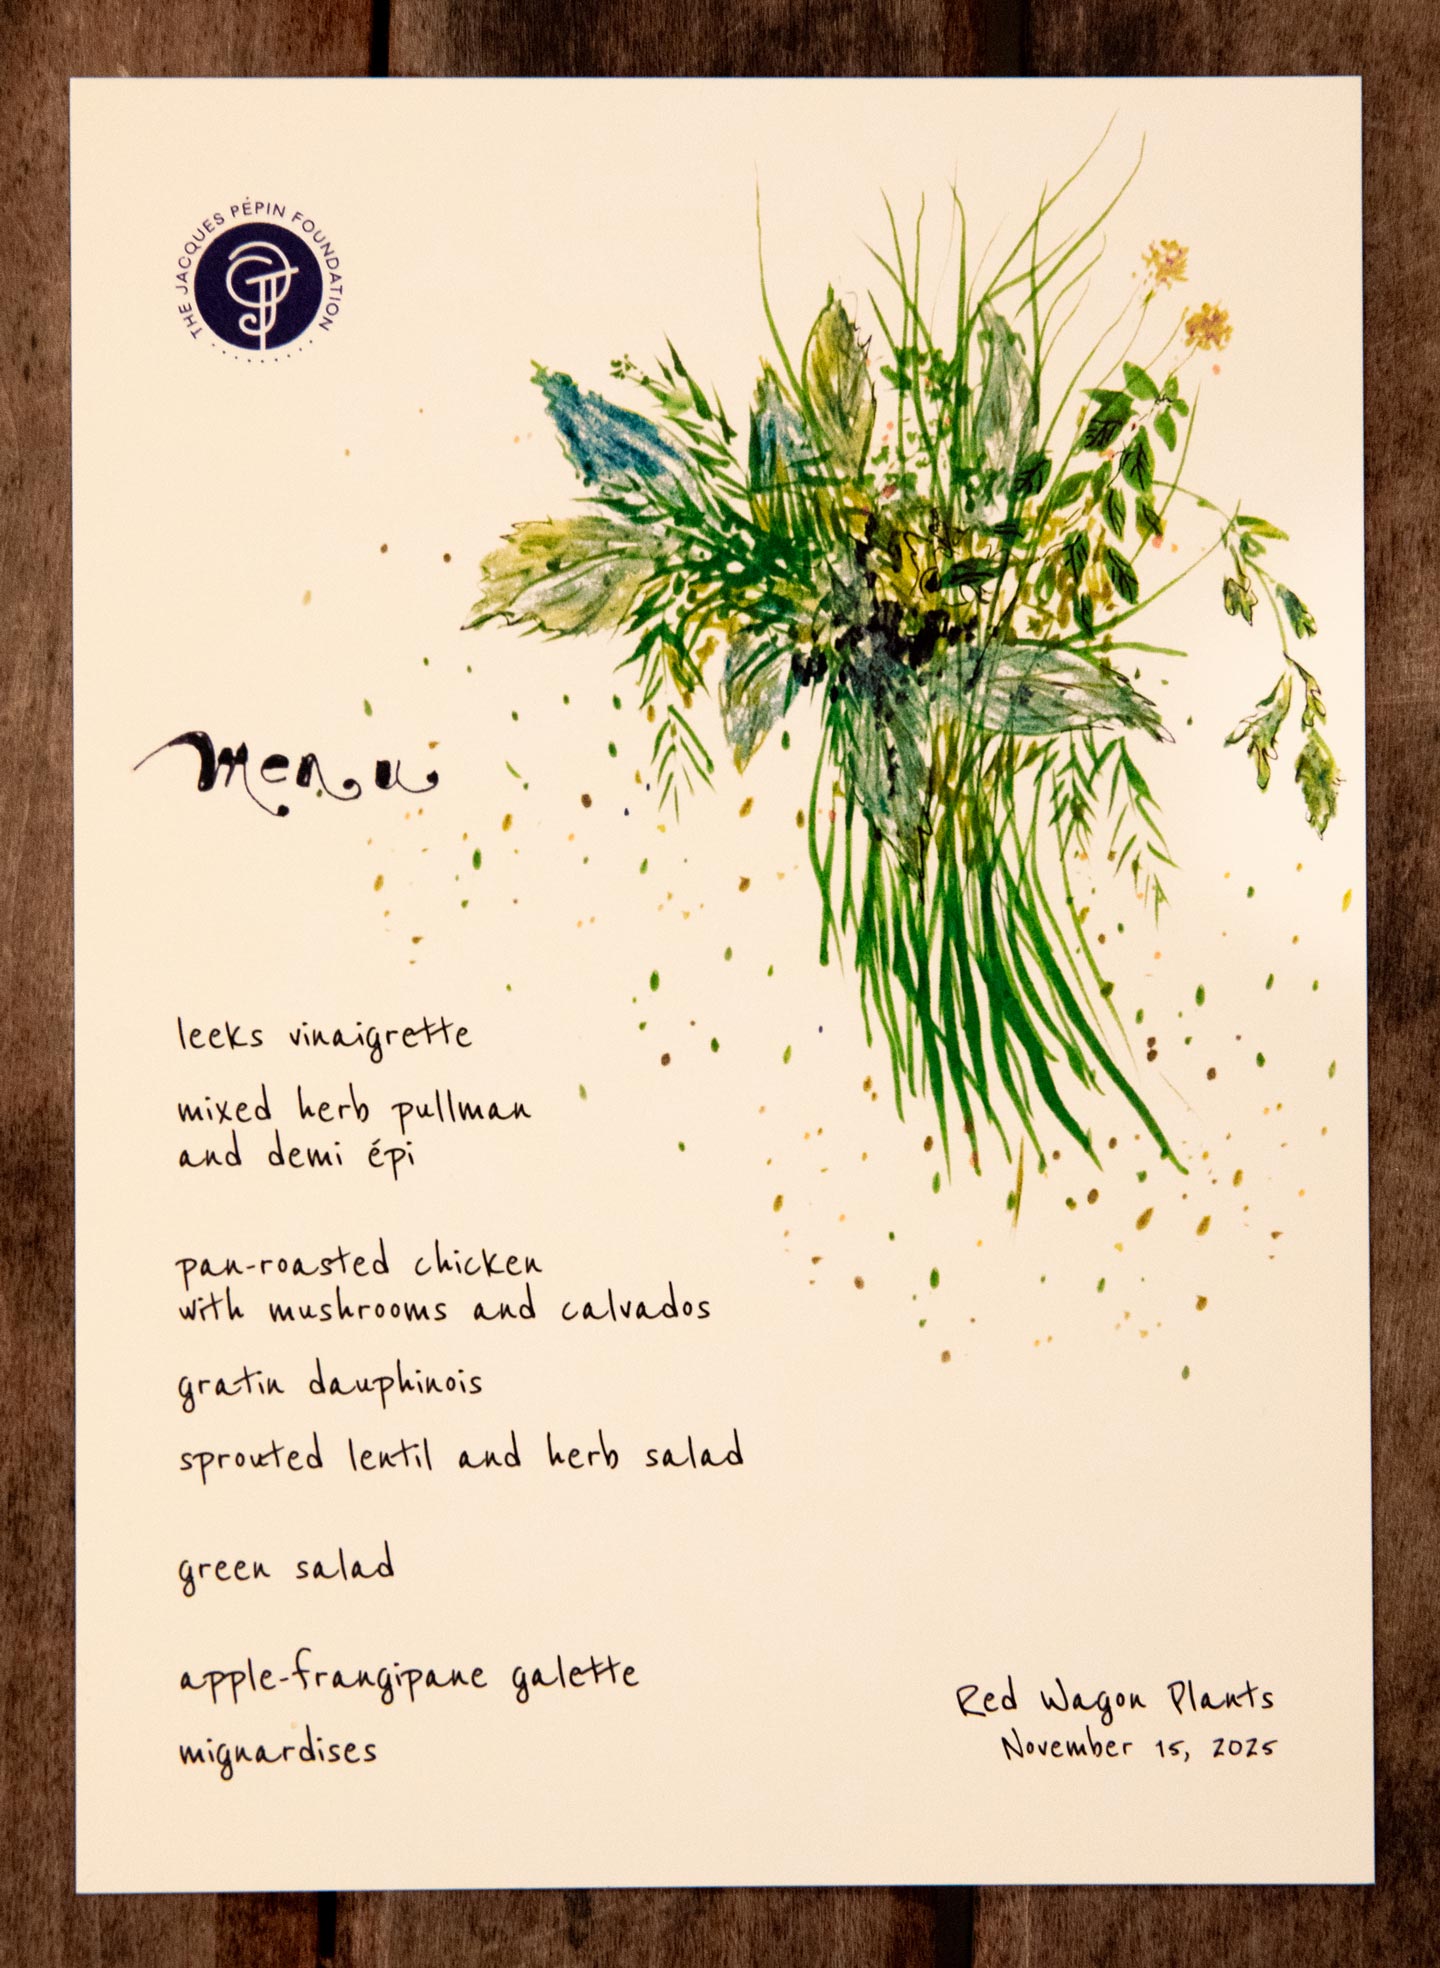 THE JACQUES PÉPIN FOUNDATION
menu
leeks vinaigrette
mixed herb pullman
and demi épi
pan-roasted chicken
with mushrooms and calvados
gratin dauphinois
sprouted lentil and herb salad
green salad
apple-frangipane galette
mignardises
Red Wagon Plants
November 15, 2025